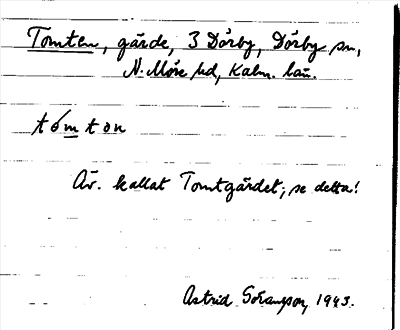 Tomten, gärde, 3 Dörby, Dörby sn,
N. Möre hd, Kalm. län.
tómton
Äv. kallat Tomtgärdet; se detta!
Astrid Göransson, 1943.